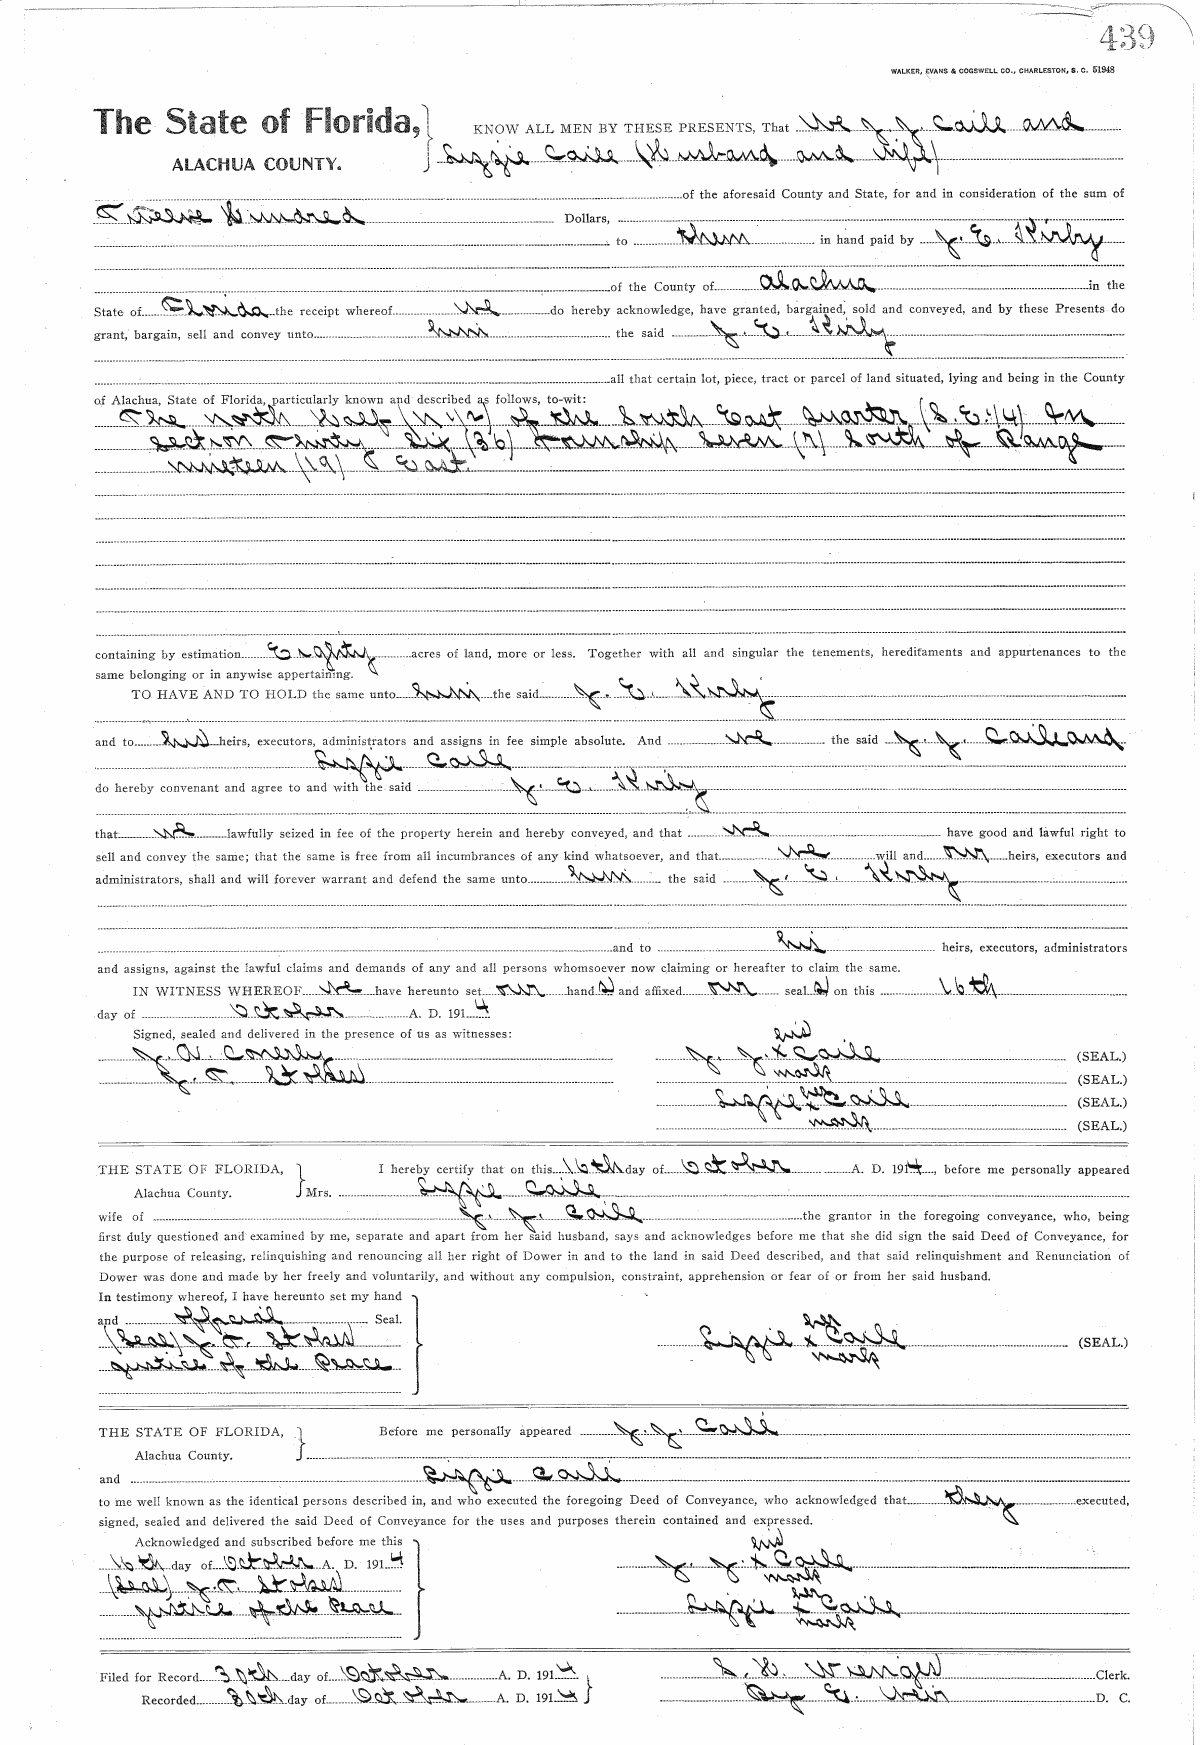 439
WALKER, EVANS & COGSWELL CO., CHARLESTON, S. C. 51948
The State of Florida, KNOW ALL MEN BY THESE PRESENTS, That We J. J. Caile and
ALACHUA COUNTY. Lizzie Caile (Husband and wife)
of the aforesaid County and State, for and in consideration of the sum of
Twelve Hundred Dollars,
to them in hand paid by J. E. Kirby
of the County of Alachua in the
State of Florida the receipt whereof we do hereby acknowledge, have granted, bargained, sold and conveyed, and by these Presents do
grant, bargain, sell and convey unto him the said J. E. Kirby
all that certain lot, piece, tract or parcel of land situated, lying and being in the County
of Alachua, State of Florida, particularly known and described as follows, to-wit:
The north half (N 1/2) of the South East quarter (S.E. 1/4) In
section Thirty Six (36) Township Seven (7) South of Range
nineteen (19) East.
containing by estimation Eighty acres of land, more or less. Together with all and singular the tenements, hereditaments and appurtenances to the
same belonging or in anywise appertaining.
TO HAVE AND TO HOLD the same unto him the said J. E. Kirby
and to his heirs, executors, administrators and assigns in fee simple absolute. And we the said J. J. Caile and
Lizzie Caile
do hereby convenant and agree to and with the said J. E. Kirby
that we lawfully seized in fee of the property herein and hereby conveyed, and that we have good and lawful right to
sell and convey the same; that the same is free from all incumbrances of any kind whatsoever, and that we will and our heirs, executors and
administrators, shall and will forever warrant and defend the same unto him the said J. E. Kirby
and to his heirs, executors, administrators
and assigns, against the lawful claims and demands of any and all persons whomsoever now claiming or hereafter to claim the same.
IN WITNESS WHEREOF we have hereunto set our hand s and affixed our seal s on this 16th
day of October A. D. 1914
Signed, sealed and delivered in the presence of us as witnesses:
his
J. A. Conerly J. J. x Caile (SEAL.)
J. T. Stokes mark (SEAL.)
her
Lizzie x Caile (SEAL.)
mark (SEAL.)
THE STATE OF FLORIDA, I hereby certify that on this 16th day of October A. D. 1914, before me personally appeared
Alachua County. Mrs. Lizzie Caile
wife of J. J. Caile the grantor in the foregoing conveyance, who, being
first duly questioned and examined by me, separate and apart from her said husband, says and acknowledges before me that she did sign the said Deed of Conveyance, for
the purpose of releasing, relinquishing and renouncing all her right of Dower in and to the land in said Deed described, and that said relinquishment and Renunciation of
Dower was done and made by her freely and voluntarily, and without any compulsion, constraint, apprehension or fear of or from her said husband.
In testimony whereof, I have hereunto set my hand
and official Seal.
her
(Seal) J. T. Stokes Lizzie x Caile (SEAL.)
Justice of the Peace mark
THE STATE OF FLORIDA, Before me personally appeared J. J. Caile
Alachua County.
and Lizzie Caile
to me well known as the identical persons described in, and who executed the foregoing Deed of Conveyance, who acknowledged that they executed,
signed, sealed and delivered the said Deed of Conveyance for the uses and purposes therein contained and expressed.
Acknowledged and subscribed before me this his
16th day of October A. D. 1914 J. J. x Caile
(Seal) J. T. Stokes mark
her
Justice of the Peace Lizzie x Caile
mark
Filed for Record 30th day of October A. D. 1914 S. H. Wienges Clerk.
Recorded 30th day of October A. D. 1914 By E. Weir D. C.